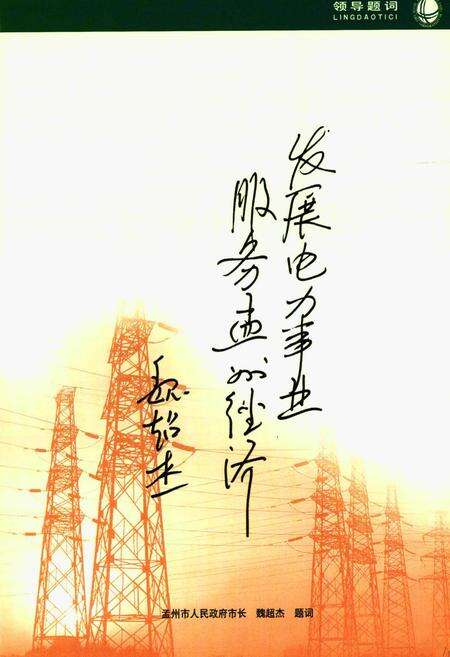 领导题词
LINGDAOTICI
发展电力事业
服务孟州经济
魏超杰
孟州市人民政府市长 魏超杰 题词